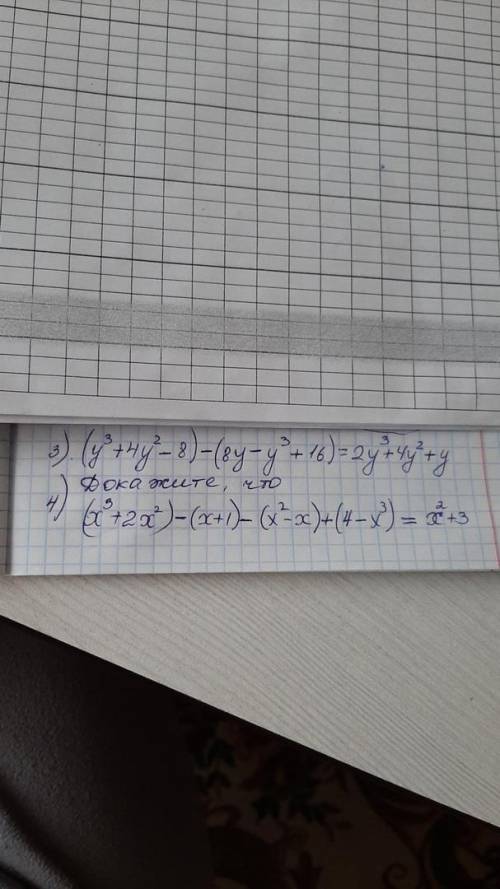 3). (y³+4y²-8)-(8y-y³+16)=2y³+4y²+y
4) Докажите, что
(x³+2x²)-(x+1)-(x²-x)+(4-x³)=x²+3